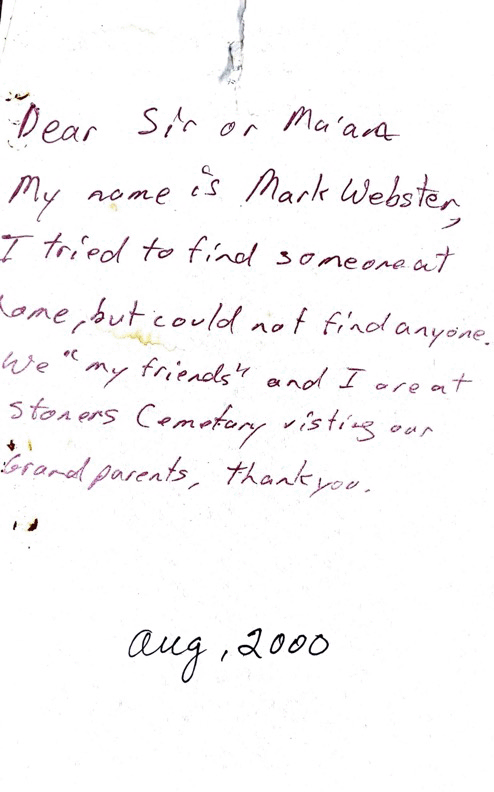 Dear Sir or Ma'am
My name is Mark Webster,
I tried to find someone at
home, but could not find anyone.
We "my friends" and I are at
Stoners Cemetary visting our
Grandparents, thankyou.
Aug, 2000